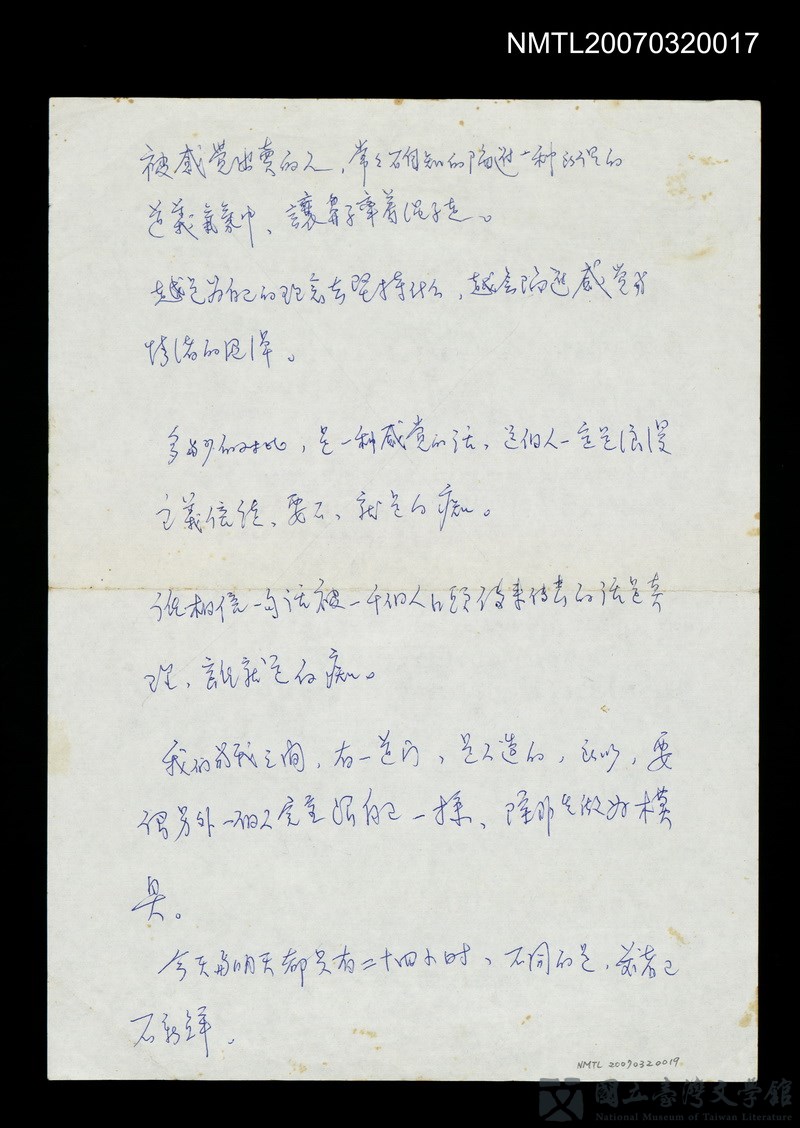 NMTL20070320017
被感覺出賣的人，常常不自知的陷進一種所謂的
道義氣氛中、讓鼻子牽着鼻子走。
越是為自己的理念去堅持什么，越會陷進感覺與
情緒的困擾。
多與少的对比，是一种感觉的话、这個人一定是浪漫
主義信徒、要不、就是白痴。
谁相信一句话被一千個人口頭传来传去的话是真
理、誰就是白痴。
我们與我之间，有一道门，是人造的，所以，要
偶另外一個人完全跟自己一樣、除非先做好模
具。
今天與明天都只有二十四小时、不同的是，前者已
不新鮮。
NMTL 20070320019
國立臺灣文學館
National Museum of Taiwan Literature